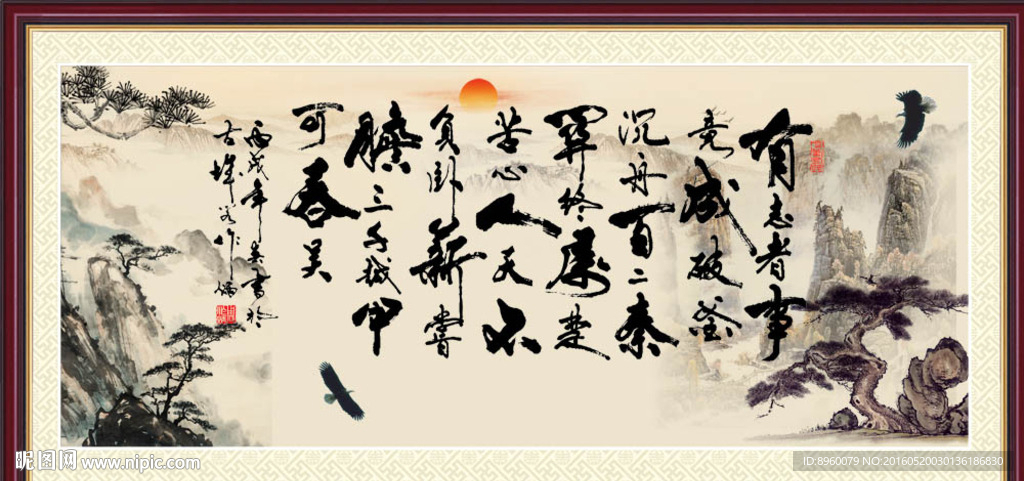 有志者事
竟成破釜
沉舟百二秦
関终属楚
苦心人天不
负卧薪嘗
膽三千越甲
可吞吴
丙戌年春書於
昵图网 www.nipic.com
ID:8960079 NO:20160520030136186830